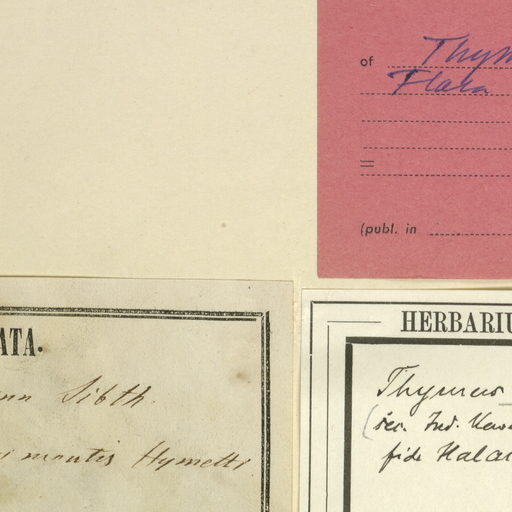 of Thym
Flara
=
(publ. in
ATA.
Sibth.
montis Hymetti
HERBARIU
Thymus
(sec. Ind. Kew
fide Halac